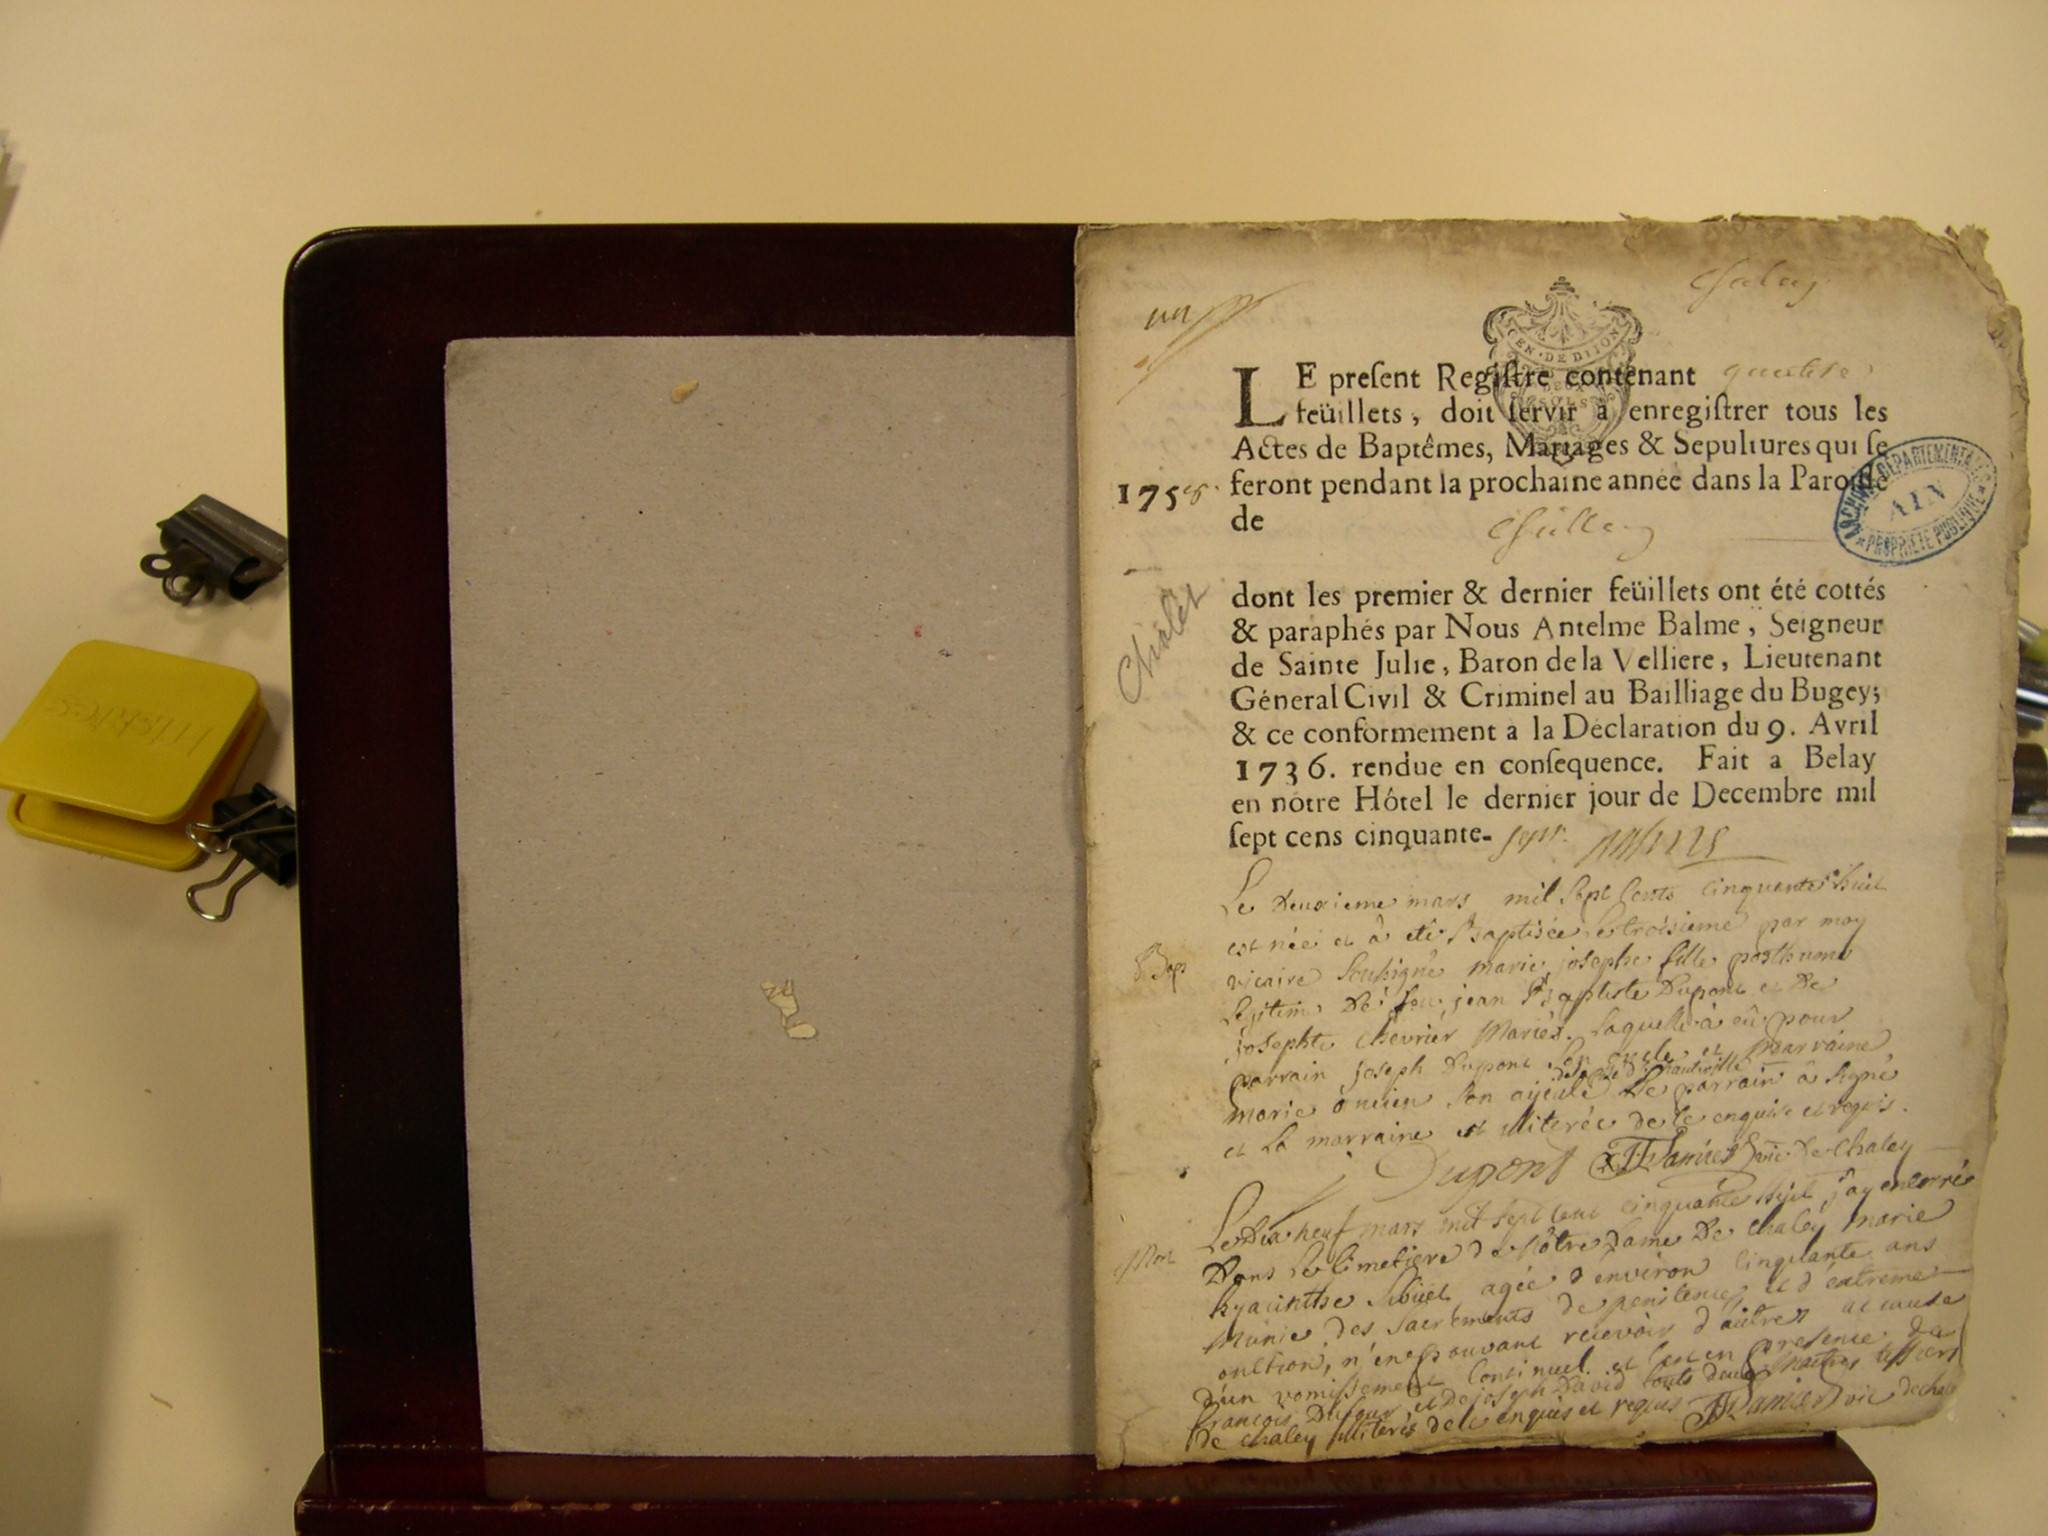 un
Chaley
GEN · DE DIJON
DEUX
SOLS
LE preſent Regiſtre contenant quatre
feüillets, doit ſervir à enregiſtrer tous les
Actes de Baptêmes, Mariages & Sepultures qui ſe
1758. feront pendant la prochaine année dans la Paroiſſe
de Chaley
ARCHIVES DEPARTEMENTALES
AIN
* PROPRIETE PUBLIQUE *
Chaley
dont les premier & dernier feüillets ont été cottés
& paraphés par Nous Antelme Balme, Seigneur
de Sainte Julie, Baron de la Velliere, Lieutenant
Géneral Civil & Criminel au Bailliage du Bugey;
& ce conformement a la Déclaration du 9. Avril
1736. rendue en conſequence. Fait a Belay
en nôtre Hôtel le dernier jour de Decembre mil
ſept cens cinquante-sept.
Le Deuxieme mars mil sept cents cinquante huit
est née et à eté Baptisée le troisieme par moy
Bap
vicaire soussigné marie josephe fille posthume
De feu jean Baptiste Dupont et De
josephte Chevrier Mariés. laquelle à eû pour
parrain joseph Dupont son oncle et marraine
marie son ayeule Le parrain â signé
et la marraine est illiterée de ce enquise et requis.
Dupont vic. De Chaley
Le Dix neuf mars mil sept cent cinquante huit j'ay enterré
Mort
Dans le Cimetiere de Nôtre Dame De Chaley marie
hyacinthe agée d'environ cinquante ans
munie des sacrements de penitence et d'extreme
onction, n'en pouvant recevoir d'autres a cause
d'un vomissement continuel. et c'est en presence de
francois Dufour et De joseph David touts deux
De chaley illiterés de ce enquis et requis vic de chaley